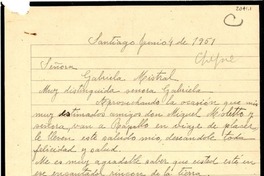 C
Santiago Junio 9 de 1951
Señora
Gabriela Mistral
Muy distinguida señora Gabriela
Aprovechando la ocasión que mis
muy estimados amigos don Miguel
señora, van a Rapallo en viaje de placer,
le lleven este saludo mío, deseándole toda
felicidad y salud.
Me es muy agradable saber que usted está en
ese encantador rincón de la tierra